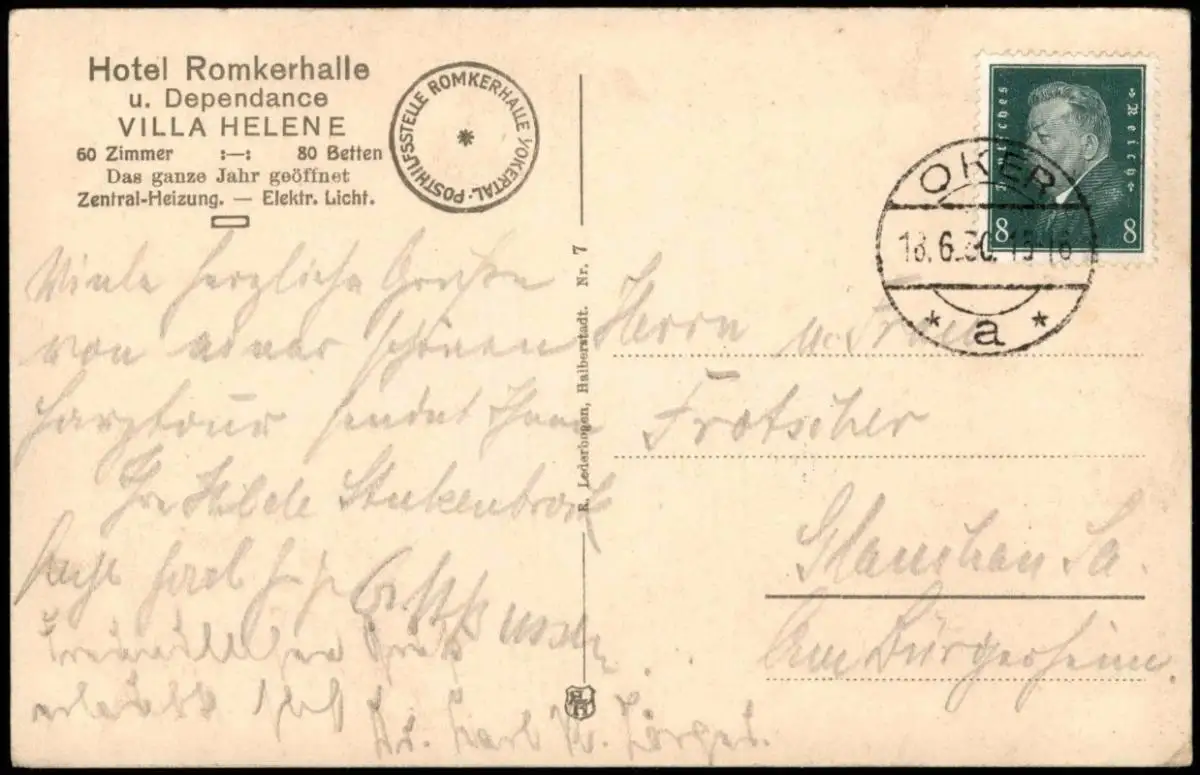 Hotel Romkerhalle
u. Dependance
VILLA HELENE
60 Zimmer :—: 80 Betten
Das ganze Jahr geöffnet
Zentral-Heizung. — Elektr. Licht.
POSTHILFSSTELLE ROMKERHALLE / OKERTAL
Deutsches Reich
8 8
OKER
18.6.30. 15-16
* a *
Viele herzliche Grüße
von einer schönen
Harztour sendet Ihnen
Ihre Hilde Stukenbrock
Gruß
erlaubt sich
R. Lederbogen, Halberstadt. Nr. 7
Herrn u. Frau
Frotscher
Glauchau Sa.
Am Bürgerheim.